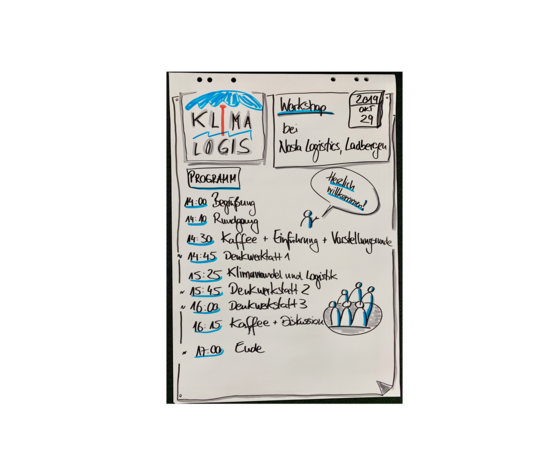 KLIMA
LOGIS
Workshop
bei
Nosta Logistics, Ladbergen
2019
OKT
29
PROGRAMM
Herzlich
willkommen!
14:00 Begrüßung
14:10 Rundgang
14:30 Kaffee + Einführung + Vorstellungsrunde
~ 14:45 Denkwerkstatt 1
15:25 Klimawandel und Logistik
~ 15:45 Denkwerkstatt 2
~ 16:00 Denkwerkstatt 3
16:15 Kaffee + Diskussion
~ 17:00 Ende